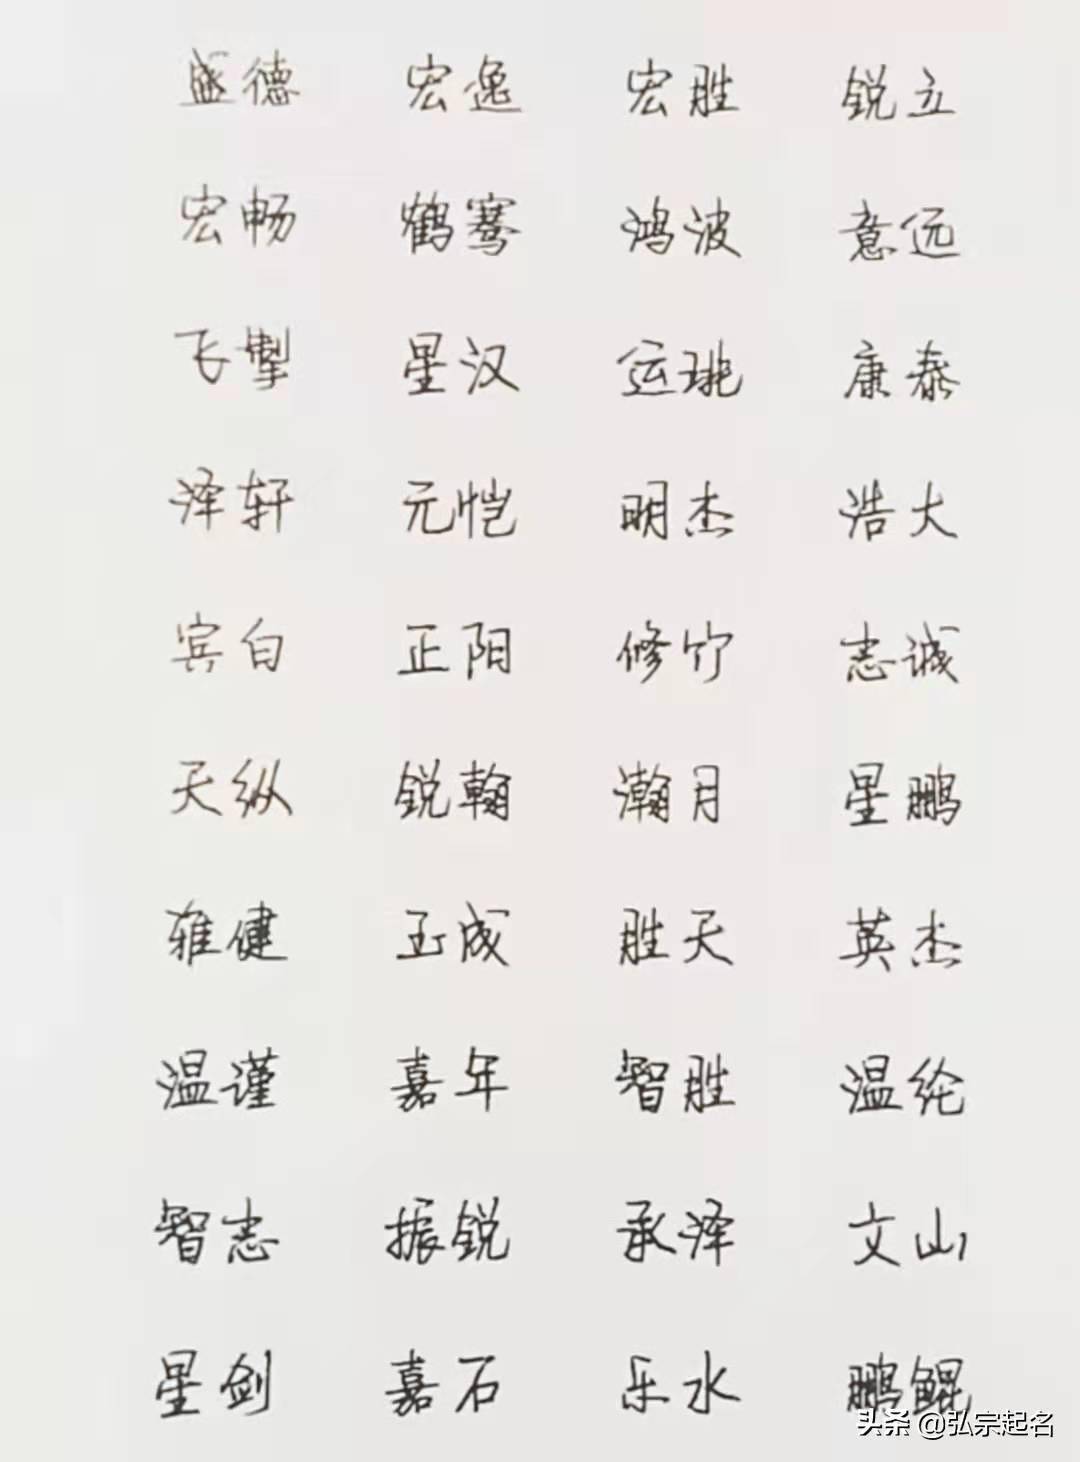 盛德 宏逸 宏胜 锐立
宏畅 鹤骞 鸿波 意远
飞掣 星汉 运珧 康泰
泽轩 元恺 明杰 浩大
宾白 正阳 修竹 志诚
天纵 锐翰 瀚月 星鹏
雅健 玉成 胜天 英杰
温谨 嘉年 智胜 温纶
智志 振锐 承泽 文山
星剑 嘉石 乐水 鹏鲲
头条 @弘宗起名